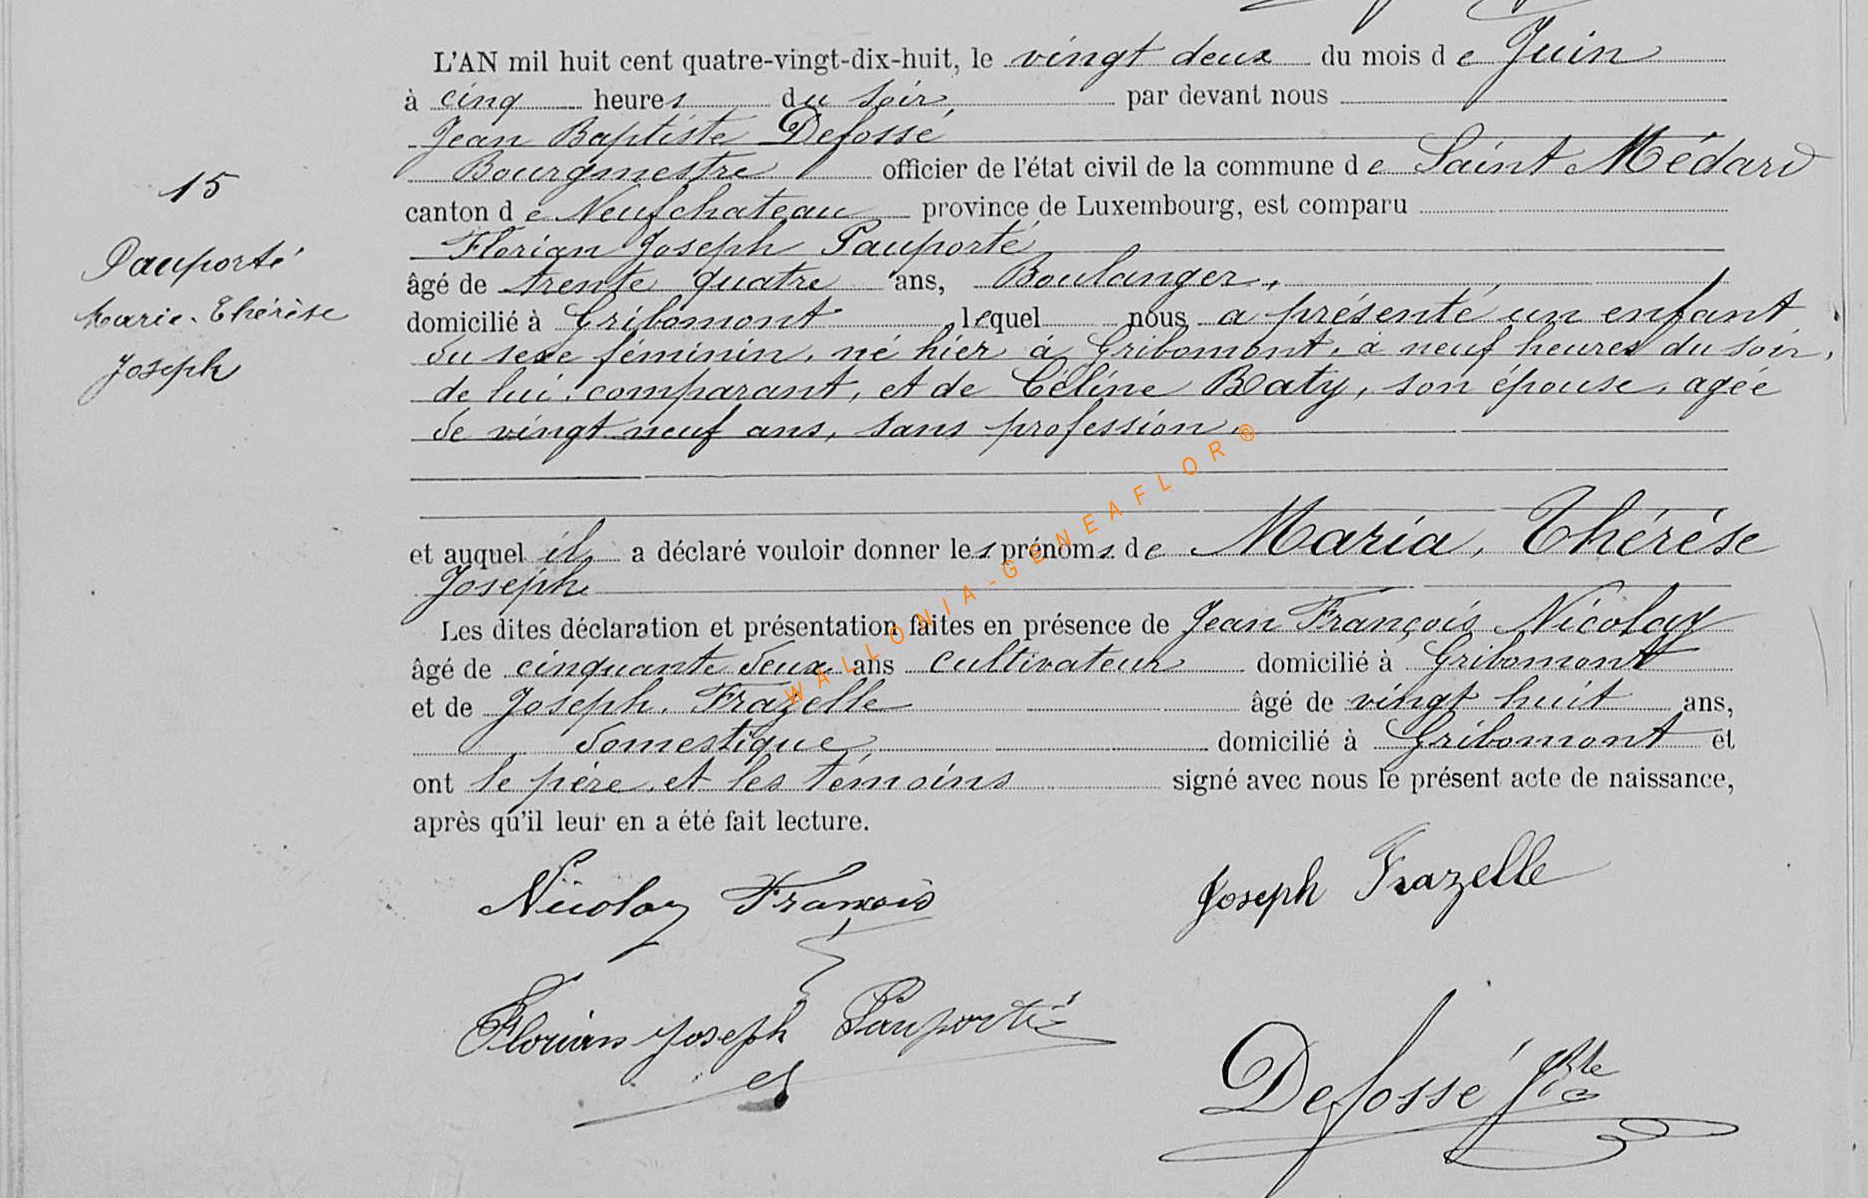 15
Pauporté
Marie-Thérèse
Joseph
L'AN mil huit cent quatre-vingt-dix-huit, le vingt deux du mois de Juin
à cinq heures du soir, par devant nous
Jean Baptiste Defossé
Bourgmestre officier de l'état civil de la commune de Saint Médard
canton de Neufchateau province de Luxembourg, est comparu
Florian Joseph Pauporté
âgé de trente quatre ans, Boulanger,
domicilié à Gribomont lequel nous a présenté un enfant
du sexe féminin, né hier à Gribomont, à neuf heures du soir,
de lui, comparant, et de Céline Baty, son épouse, agée
de vingt neuf ans, sans profession.
et auquel il a déclaré vouloir donner les prénoms de Maria, Thérèse
Joseph
Les dites déclaration et présentation faites en présence de Jean François Nicolay
âgé de cinquante deux ans cultivateur domicilié à Gribomont
et de Joseph Frazelle âgé de vingt huit ans,
domestique, domicilié à Gribomont et
ont le père et les témoins signé avec nous le présent acte de naissance,
après qu'il leur en a été fait lecture.
Nicolay François
Joseph Frazelle
Florian Joseph Pauporté
Defossé Jn Bte
WALLONIA-GENEAFLOR®